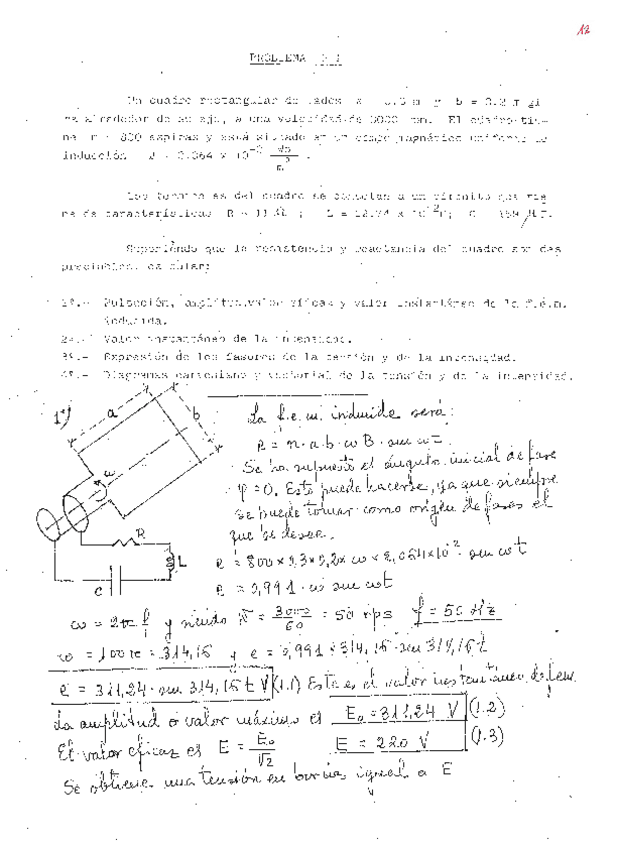 12
PROBLEMA
Un cuadro rectangular de lados a = 0.3 m y b = 0.2 m gi
ra alrededor de su eje, a una velocidad de 3000 rpm. El cuadro tie-
ne n = 800 espiras y está situado en un campo magnético uniforme de
inducción
Los terminales del cuadro se conectan a un circuito que tie
ne de características R = L = C =
Suponiendo que la resistencia y reactancia del cuadro son des
preciables, calcular:
1º.- Pulsación, amplitud, valor eficaz y valor instantáneo de la f.e.m.
inducida.
2º.- Valor instantáneo de la intensidad.
3º.- Expresión de los fasores de la tensión y de la intensidad.
4º.- Diagramas cartesiano y vectorial de la tensión y de la intensidad.
1º) a b ω
La f.e.m. inducida será:
e = n·a·b·ω B·sen ωt
Se ha supuesto el ángulo inicial de fase
φ=0. Esto puede hacerse, ya que siempre
se puede tomar como origen de fases el
que se desee.
R
L
C
e = 800×0,3×0,2× ω × 2,064×10⁻² sen ωt
e = 0,991·ω sen ωt
ω = 2π f y siendo N = 3000/60 = 50 rps f = 50 Hz
ω = 100π = 314,16 y e = 0,991 × 314,16·sen 314,16t
e = 311,24·sen 314,16 t V (1.1) Este es el valor instantáneo de la f.e.m.
La amplitud o valor máximo es E₀ = 311,24 V (1.2)
El valor eficaz es E = E₀/√2 E = 220 V (1.3)
Se obtiene una tensión en bornas igual a E